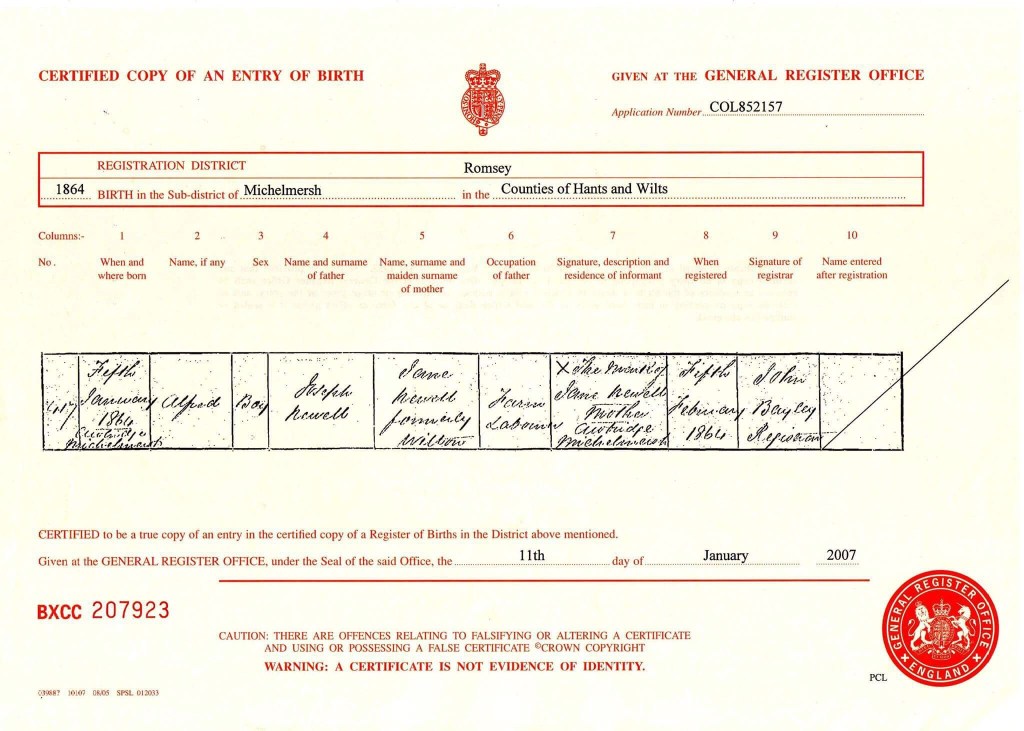 CERTIFIED COPY OF AN ENTRY OF BIRTH
GIVEN AT THE GENERAL REGISTER OFFICE
Application Number COL852157
REGISTRATION DISTRICT Romsey
1864 BIRTH in the Sub-district of Michelmersh in the Counties of Hants and Wilts
Columns:- 1 2 3 4 5 6 7 8 9 10
No. When and where born Name, if any Sex Name and surname of father Name, surname and maiden surname of mother Occupation of father Signature, description and residence of informant When registered Signature of registrar Name entered after registration
417
Fifth
January
1864
Awbridge
Michelmersh
Alfred
Boy
Joseph
Newell
Jane
Newell
formerly
Farm
X The mark of
Jane Newell
Mother
Awbridge
Michelmersh
Fifth
February
1864
John
Bayley
Registrar
CERTIFIED to be a true copy of an entry in the certified copy of a Register of Births in the District above mentioned.
Given at the GENERAL REGISTER OFFICE, under the Seal of the said Office, the 11th day of January 2007
BXCC 207923
CAUTION: THERE ARE OFFENCES RELATING TO FALSIFYING OR ALTERING A CERTIFICATE
AND USING OR POSSESSING A FALSE CERTIFICATE ©CROWN COPYRIGHT
WARNING: A CERTIFICATE IS NOT EVIDENCE OF IDENTITY.
GENERAL REGISTER OFFICE
ENGLAND
PCL
08/05 SPSL 012033